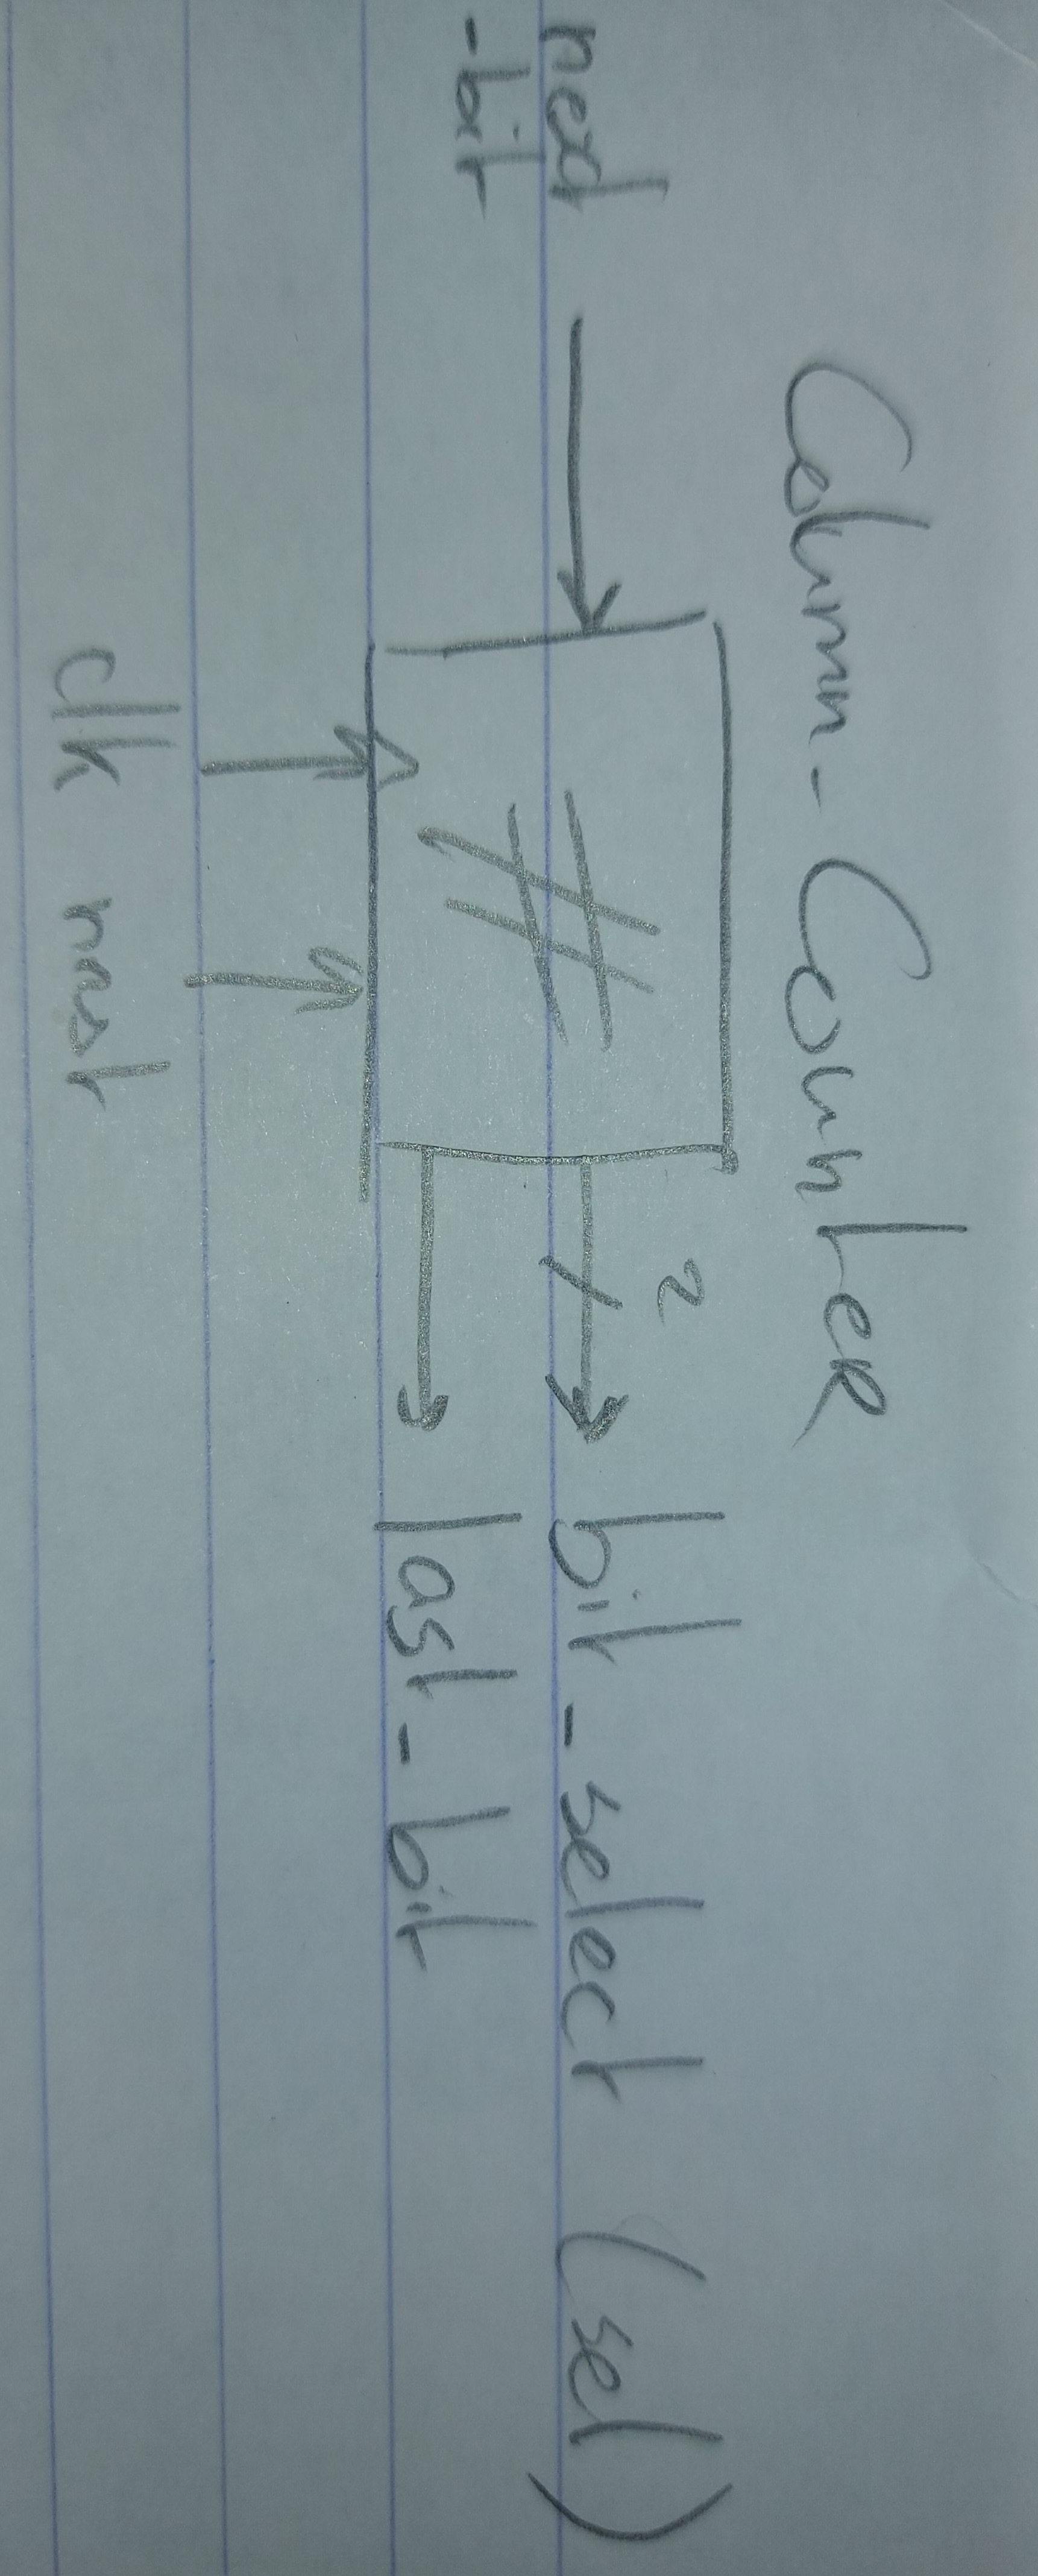 Column_Counter
2
next bit_select (sel)
_bit last_bit
#
clk nrst